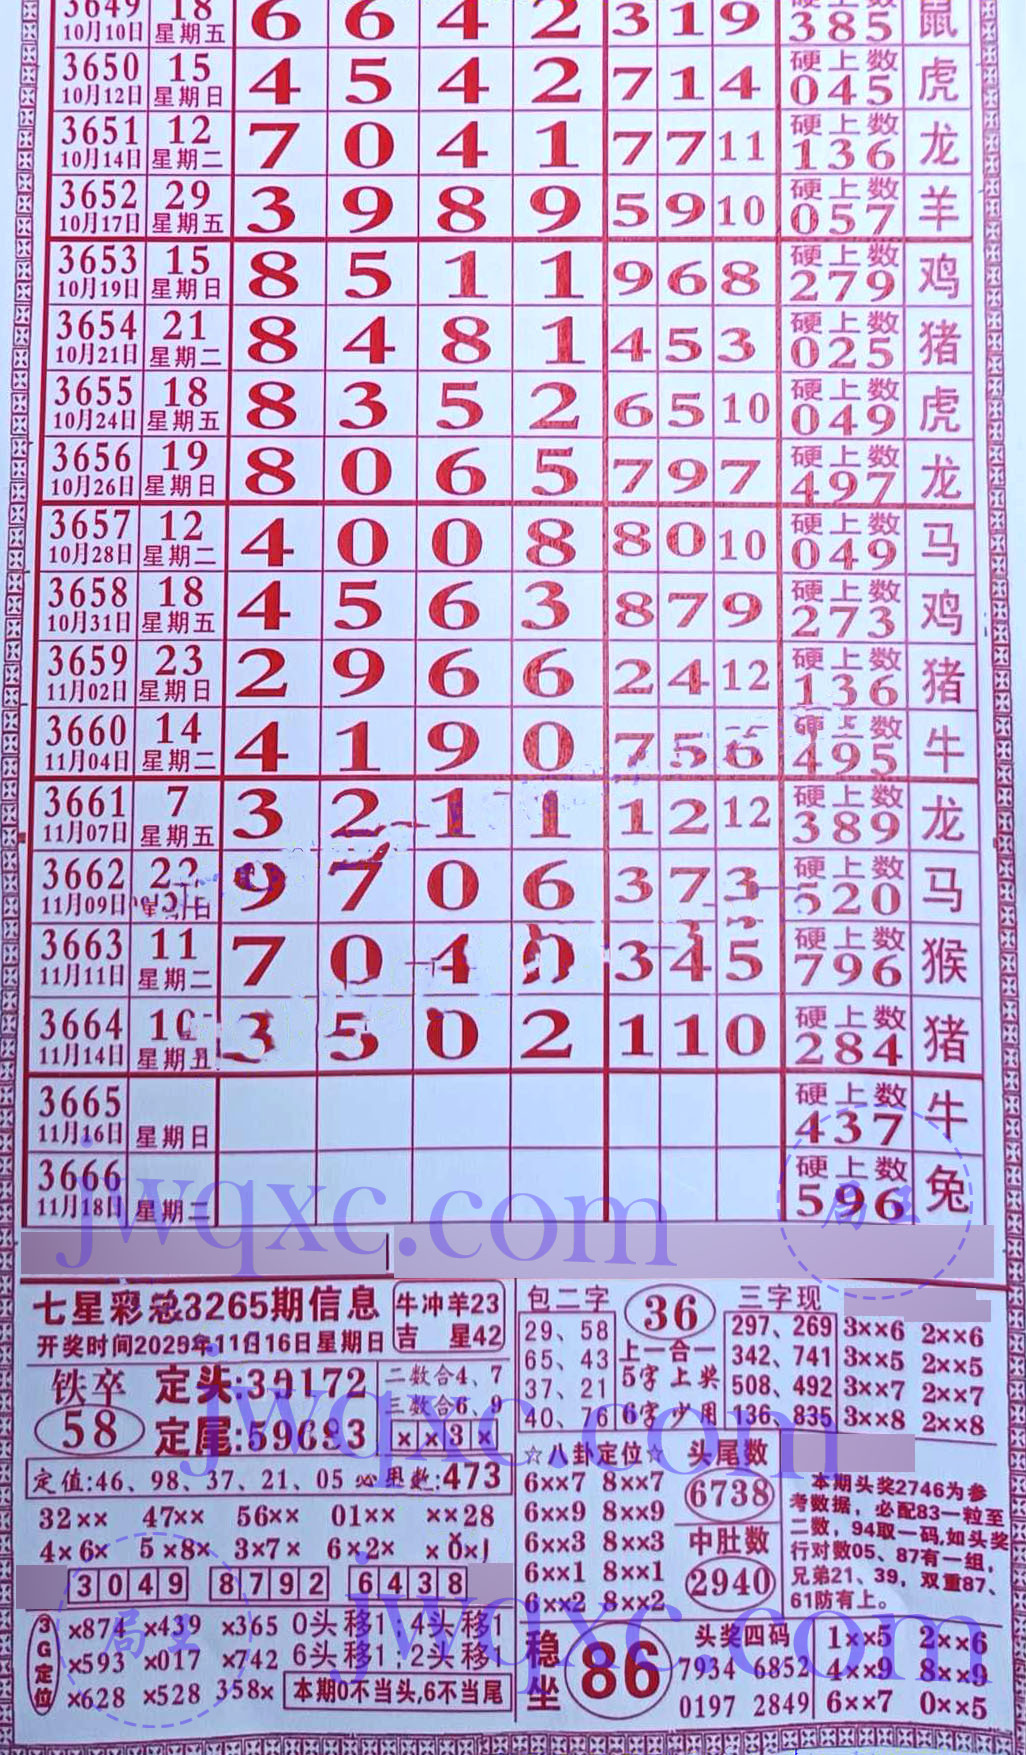 3649 18 6 6 4 2 3 1 9 硬上数 鼠
10月10日 星期五 385
3650 15 4 5 4 2 7 1 4 硬上数 虎
10月12日 星期日 045
3651 12 7 0 4 1 7 7 11 硬上数 龙
10月14日 星期二 136
3652 29 3 9 8 9 5 9 10 硬上数 羊
10月17日 星期五 057
3653 15 8 5 1 1 9 6 8 硬上数 鸡
10月19日 星期日 279
3654 21 8 4 8 1 4 5 3 硬上数 猪
10月21日 星期二 025
3655 18 8 3 5 2 6 5 10 硬上数 虎
10月24日 星期五 049
3656 19 8 0 6 5 7 9 7 硬上数 龙
10月26日 星期日 497
3657 12 4 0 0 8 8 0 10 硬上数 马
10月28日 星期二 049
3658 18 4 5 6 3 8 7 9 硬上数 鸡
10月31日 星期五 273
3659 23 2 9 6 6 2 4 12 硬上数 猪
11月02日 星期日 136
3660 14 4 1 9 0 7 5 6 硬上数 牛
11月04日 星期二 495
3661 7 3 2 1 1 1 2 12 硬上数 龙
11月07日 星期五 389
3662 22 9 7 0 6 3 7 3 硬上数 马
11月09日 星期日 520
3663 11 7 0 4 0 3 4 5 硬上数 猴
11月11日 星期二 796
3664 10 3 5 0 2 1 1 0 硬上数 猪
11月14日 星期五 284
3665 硬上数 牛
11月16日 星期日 437
3666 硬上数 兔
11月18日 星期二 596
jwqxc.com
七星彩总3265期信息
开奖时间2025年11月16日星期日
牛冲羊23
吉 星42
铁卒 58
定头:39172
定尾:59683
二数合4、7
三数合6、9
××3×
定值:46、98、37、21、05 奥数:473
32×× 47×× 56×× 01×× ××28
4×6× 5×8× 3×7× 6×2× ×0×1
3049 8792 6438
3G定位
×874 ×439 ×365 0头移1;4头移1
×593 ×017 ×742 6头移1;2头移1
×628 ×528 358× 本期0不当头,6不当尾
包二字
29、58
65、43
37、21
40、76
36
上一合一
5字上奖
6字少用
三字现
297、269
342、741
508、492
136、835
3××6 2××6
3××5 2××5
3××7 2××7
3××8 2××8
☆八卦定位☆
6××7 8××7
6××9 8××9
6××3 8××3
6××1 8××1
6××2 8××2
头尾数
6738
中肚数
2940
本期头奖2746为参
考数据，必配83一粒至
二数，94取一码,如头奖
行对数05、87有一组，
兄弟21、39，双重87、
61防有上。
稳坐 86
头奖四码
7934 6852
0197 2849
1××5 2××6
4××9 8××9
6××7 0××5
jwqxc.com
jwqxc.com